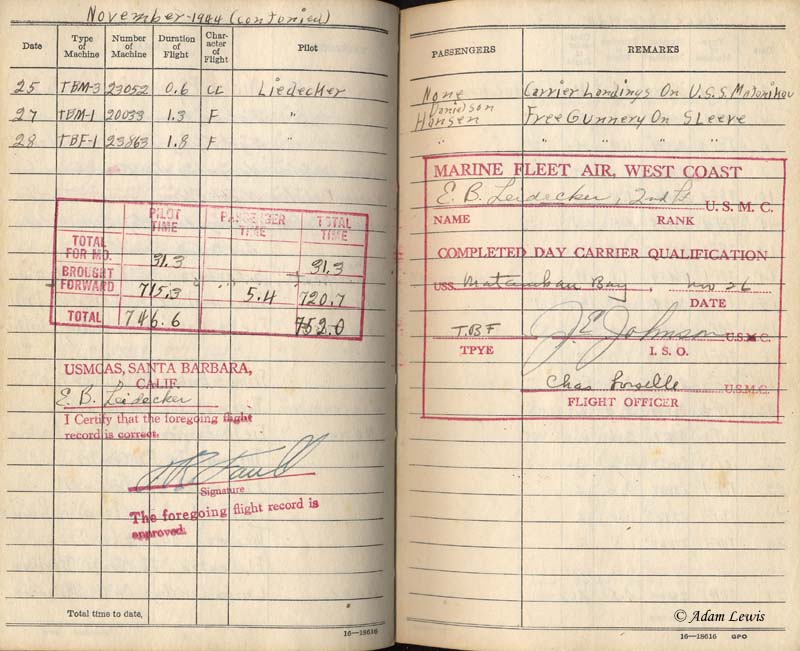 November-1944 (contonied)
Date
Type of Machine
Number of Machine
Duration of Flight
Character of Flight
Pilot
25 TBM-3 23052 0.6 CC Liedecker
27 TBM-1 20033 1.3 F "
28 TBF-1 23863 1.8 F "
PILOT TIME
PASSENGER TIME
TOTAL TIME
TOTAL FOR MO. 31.3 31.3
BROUGHT FORWARD 715.3 5.4 720.7
TOTAL 746.6 752.0
USMCAS, SANTA BARBARA,
CALIF.
E. B. Leidecker
I Certify that the foregoing flight
record is correct.
Signature
The foregoing flight record is
approved.
Total time to date,
16—18616
PASSENGERS
REMARKS
None Carrier Landings On U.S.S. Matanikau
Danielson
Hansen Free Gunnery On Sleeve
" " "
MARINE FLEET AIR, WEST COAST
E. B. Leidecker, 2nd Lt U. S. M. C.
NAME RANK
COMPLETED DAY CARRIER QUALIFICATION
USS. Matanikau Bay, Nov 26
DATE
TBF J E Johnson U.S.M.C.
TPYE I. S. O.
Chas U.S.M.C.
FLIGHT OFFICER
© Adam Lewis
16—18616 GPO